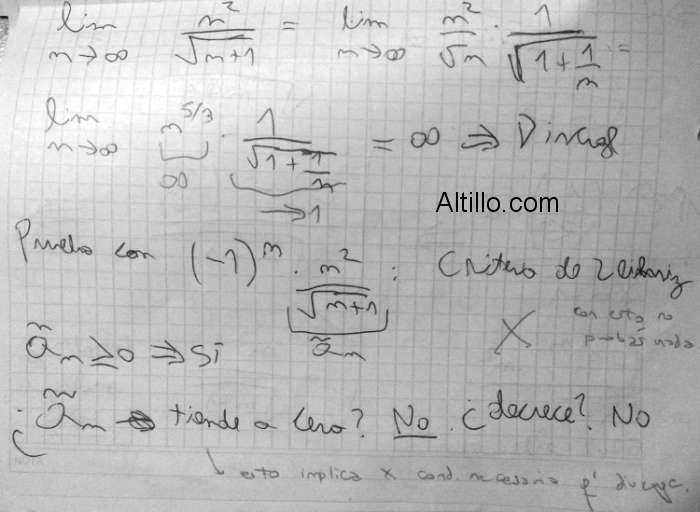 lim n→∞ n²/√(n+1) = lim n→∞ n²/√n · 1/√(1+1/n) =
lim n→∞ n^(5/3) · 1/√(1+1/n) = ∞ ⇒ Diverge
∞ →1
Altillo.com
Pruebo con (-1)ⁿ · n²/√(n+1) : Criterio de Leibniz
ãn
ãn ≥ 0 ⇒ SI
X con esto no probás nada
¿ãn tiende a cero? No. ¿decrece? NO
↳ esto implica x cond. necesaria q' diverge.